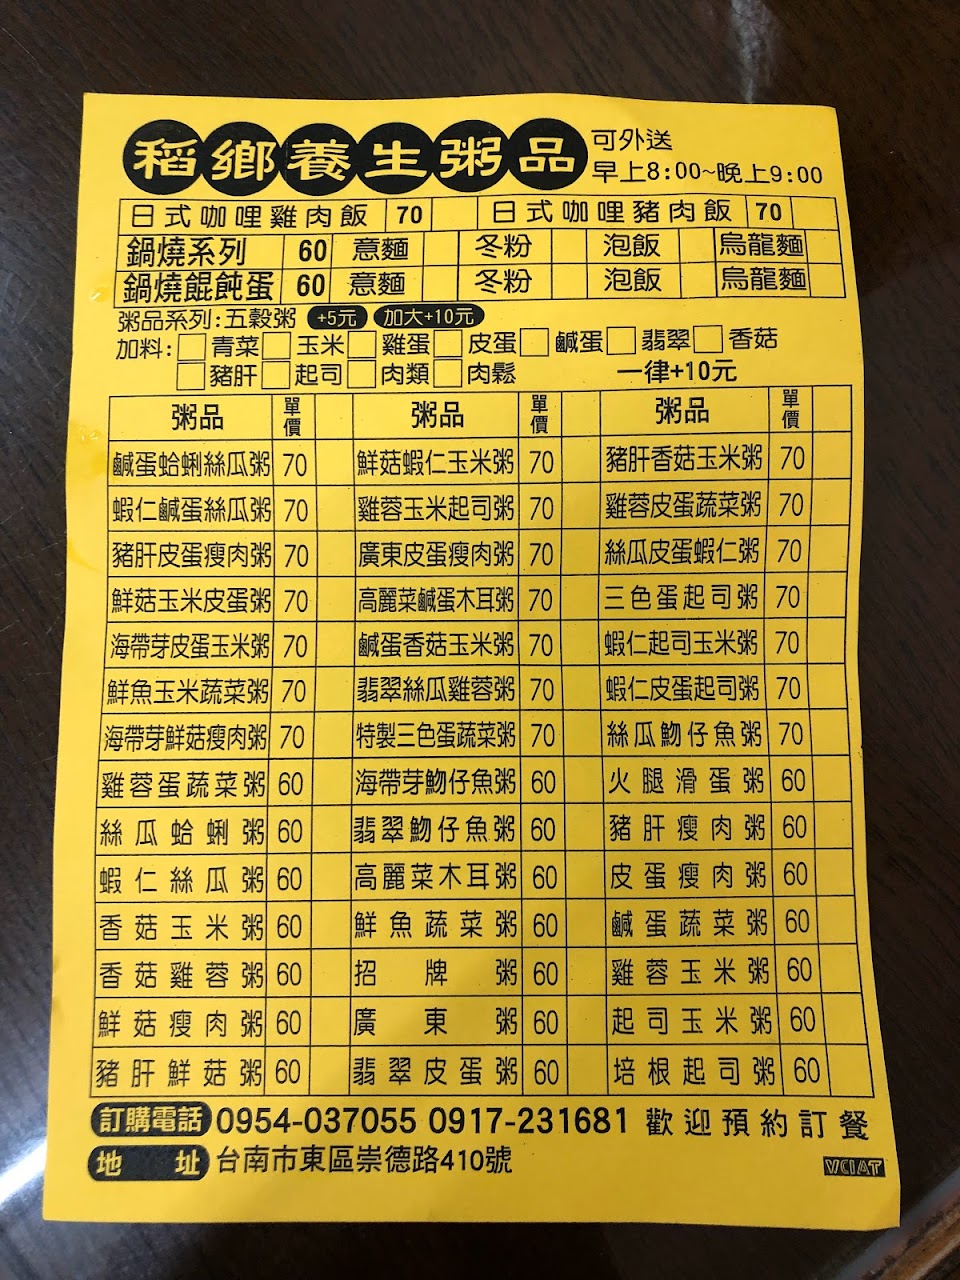 稻鄉養生粥品 可外送
早上8:00~晚上9:00
日式咖哩雞肉飯 70 日式咖哩豬肉飯 70
鍋燒系列 60 意麵 冬粉 泡飯 烏龍麵
鍋燒餛飩蛋 60 意麵 冬粉 泡飯 烏龍麵
粥品系列:五穀粥 +5元 加大+10元
加料: 青菜 玉米 雞蛋 皮蛋 鹹蛋 翡翠 香菇
豬肝 起司 肉類 肉鬆 一律+10元
粥品 單價 粥品 單價 粥品 單價
鹹蛋蛤蜊絲瓜粥 70 鮮菇蝦仁玉米粥 70 豬肝香菇玉米粥 70
蝦仁鹹蛋絲瓜粥 70 雞蓉玉米起司粥 70 雞蓉皮蛋蔬菜粥 70
豬肝皮蛋瘦肉粥 70 廣東皮蛋瘦肉粥 70 絲瓜皮蛋蝦仁粥 70
鮮菇玉米皮蛋粥 70 高麗菜鹹蛋木耳粥 70 三色蛋起司粥 70
海帶芽皮蛋玉米粥 70 鹹蛋香菇玉米粥 70 蝦仁起司玉米粥 70
鮮魚玉米蔬菜粥 70 翡翠絲瓜雞蓉粥 70 蝦仁皮蛋起司粥 70
海帶芽鮮菇瘦肉粥 70 特製三色蛋蔬菜粥 70 絲瓜魩仔魚粥 70
雞蓉蛋蔬菜粥 60 海帶芽魩仔魚粥 60 火腿滑蛋粥 60
絲瓜蛤蜊粥 60 翡翠魩仔魚粥 60 豬肝瘦肉粥 60
蝦仁絲瓜粥 60 高麗菜木耳粥 60 皮蛋瘦肉粥 60
香菇玉米粥 60 鮮魚蔬菜粥 60 鹹蛋蔬菜粥 60
香菇雞蓉粥 60 招牌粥 60 雞蓉玉米粥 60
鮮菇瘦肉粥 60 廣東粥 60 起司玉米粥 60
豬肝鮮菇粥 60 翡翠皮蛋粥 60 培根起司粥 60
訂購電話 0954-037055 0917-231681 歡迎預約訂餐
地址 台南市東區崇德路410號
VCIAT